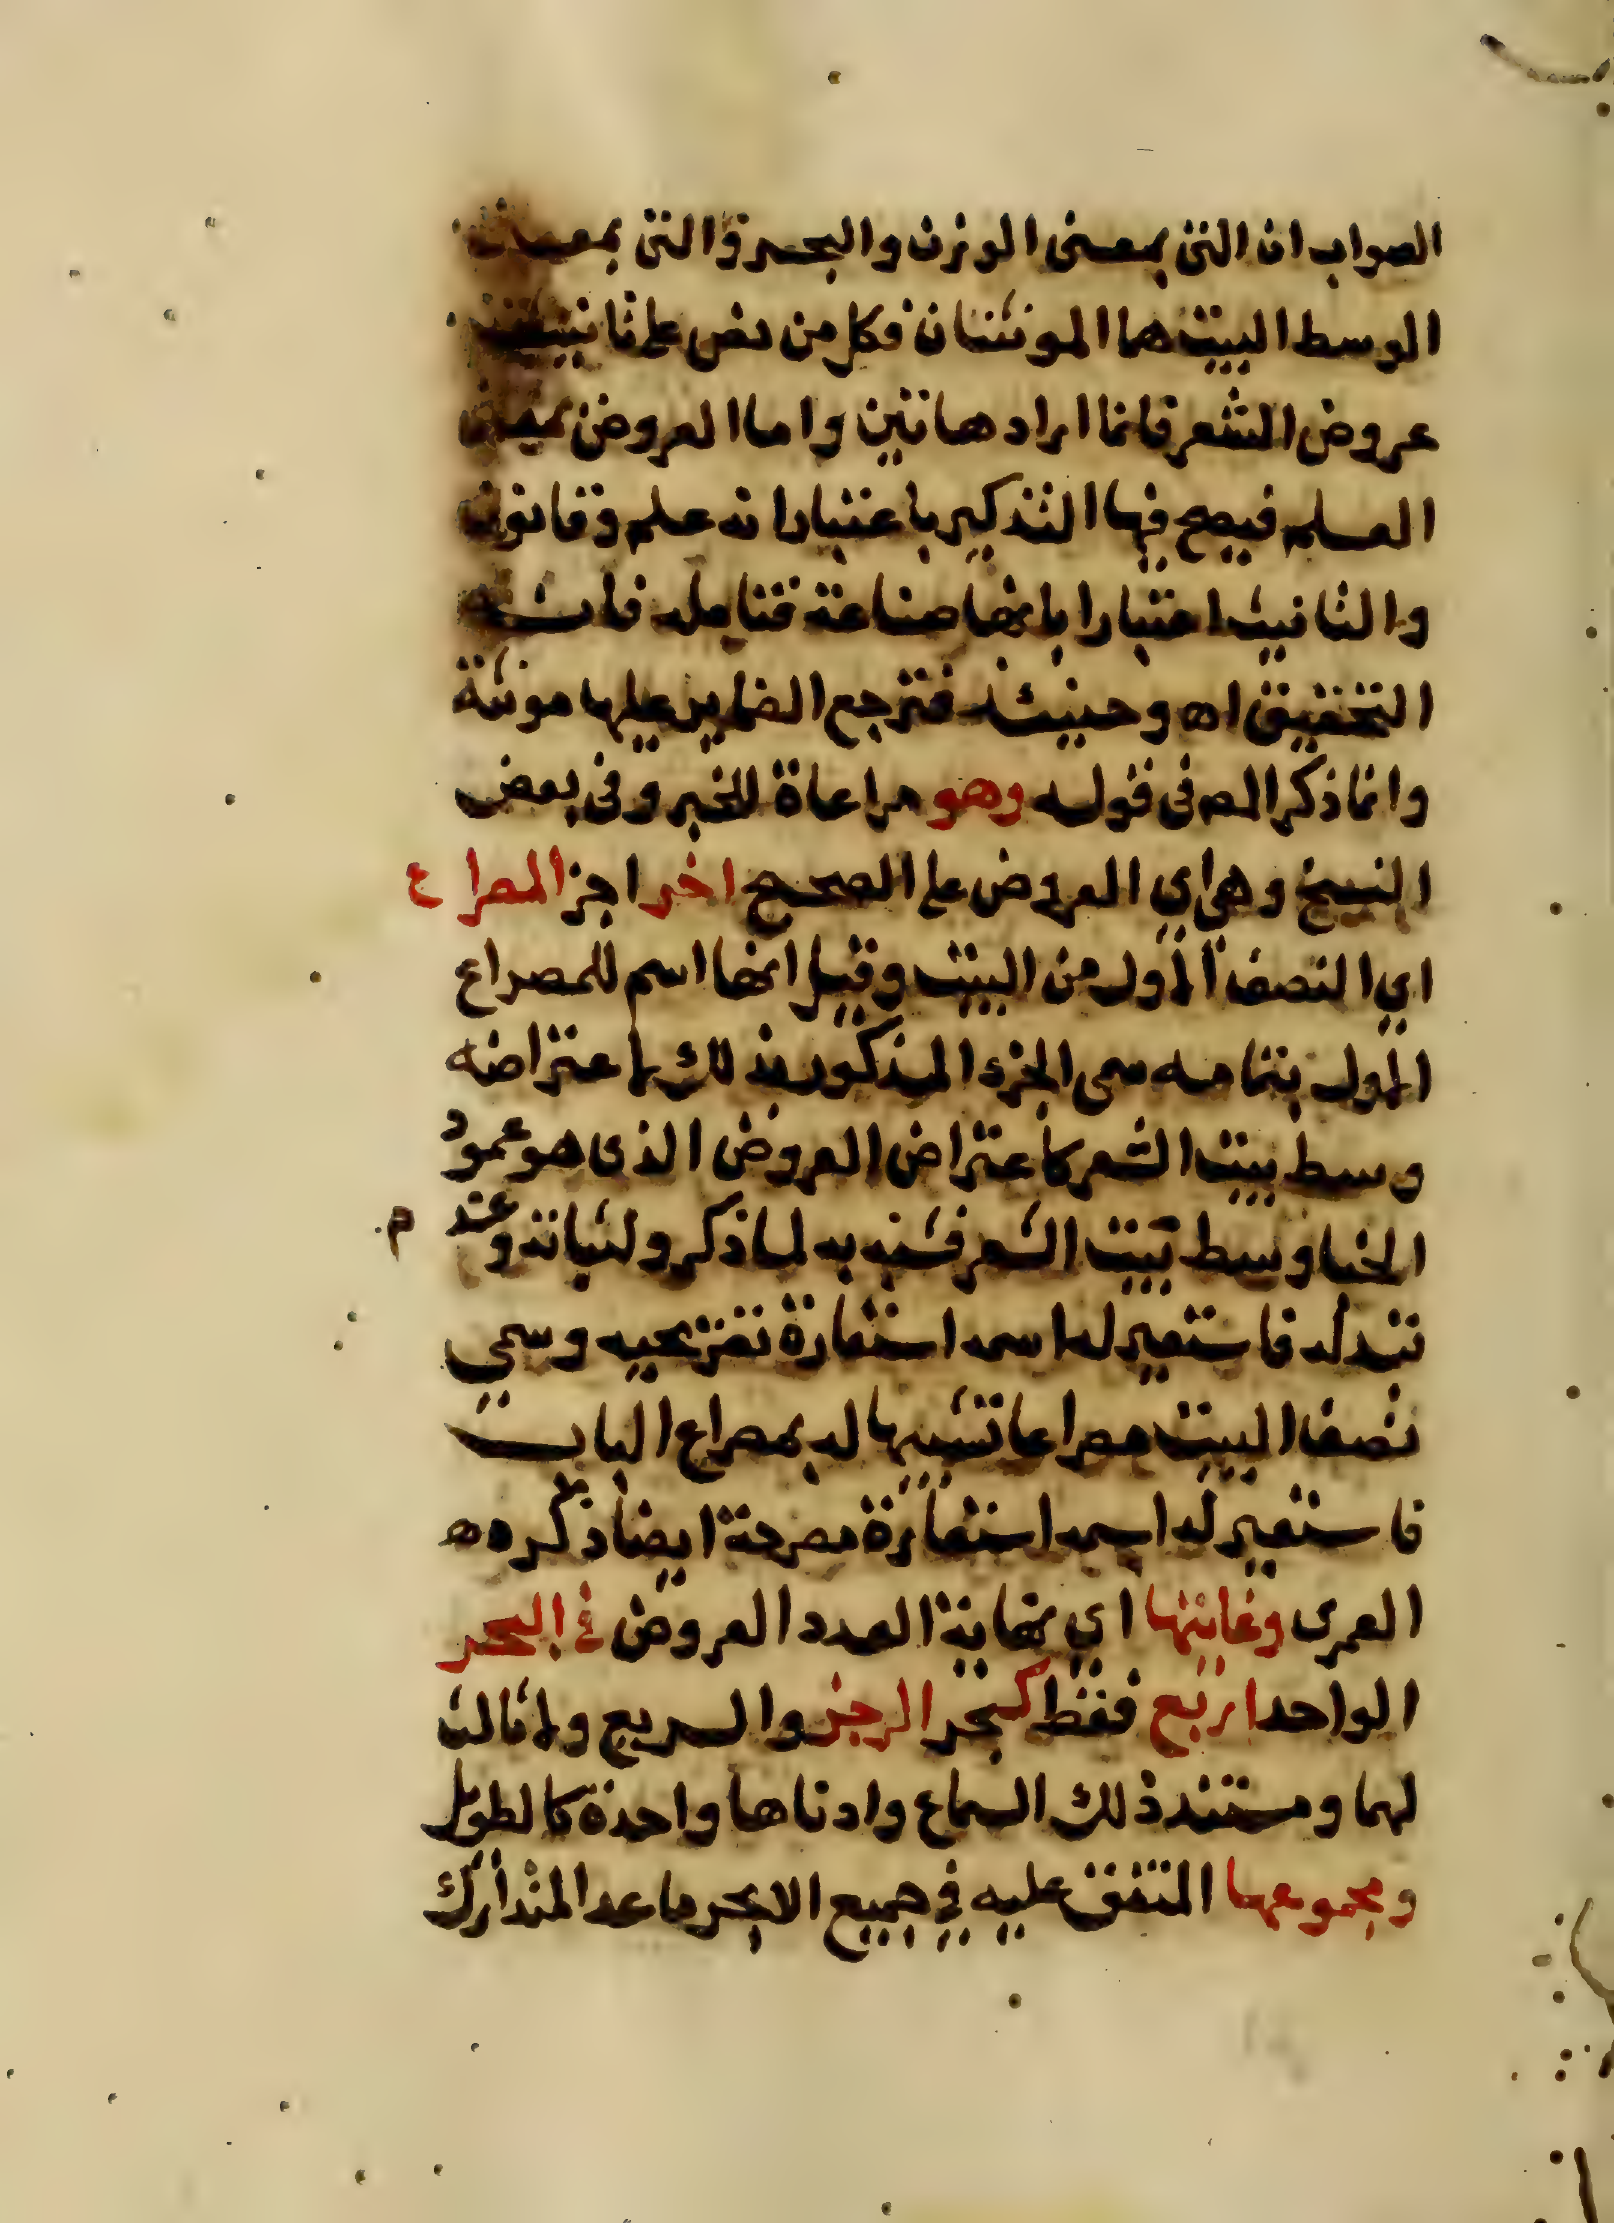 الصواب ان التى بمعنى الوزن والبحر والتى بمعنى
الوسط البيت هما المونثتان فكل من نص على تانيث
عروض الشعر فانما اراد هاتين واما العروض بمعنى
العلم فيصح فيها التذكير باعتبار انه علم وقانون
والتانيث اعتبارا بانها صناعة فتامله فانه
التحقيق اه وحينئذ فترجع الضماير عليها مونثة
وانما ذكر المص فى قوله وهو مراعاة للخبر وفى بعض
النسخ وهى اي العروض على الصحيح اخر اجز المصراع
اي النصف الاول من البيت وقيل انها اسم للمصراع
الاول بتمامه سمى الجزء المذكور بذلك لاعتراضه
وسط بيت الشعر كاعتراض العروض الذى هو عمود
الخبا وسط بيت الشعر فشبه به لما ذكر ولثباته وعند م
تبدله فاستعير له اسمه استعارة تصريحيه وسمي
نصف البيت مصراعا تشبيها له بمصراع الباب
فاستعير له اسمه استعارة مصرحة ايضا ذكره ه
العمرى وغايتها اي نهاية العدد العروض في البحر
الواحد اربع فقط كبحر الرجز والسريع ولا ثالث
لهما ومستند ذلك السماع وادناها واحدة كالطويل
ومجموعها المتفق عليه في جميع الابحر ما عدا المتدارك